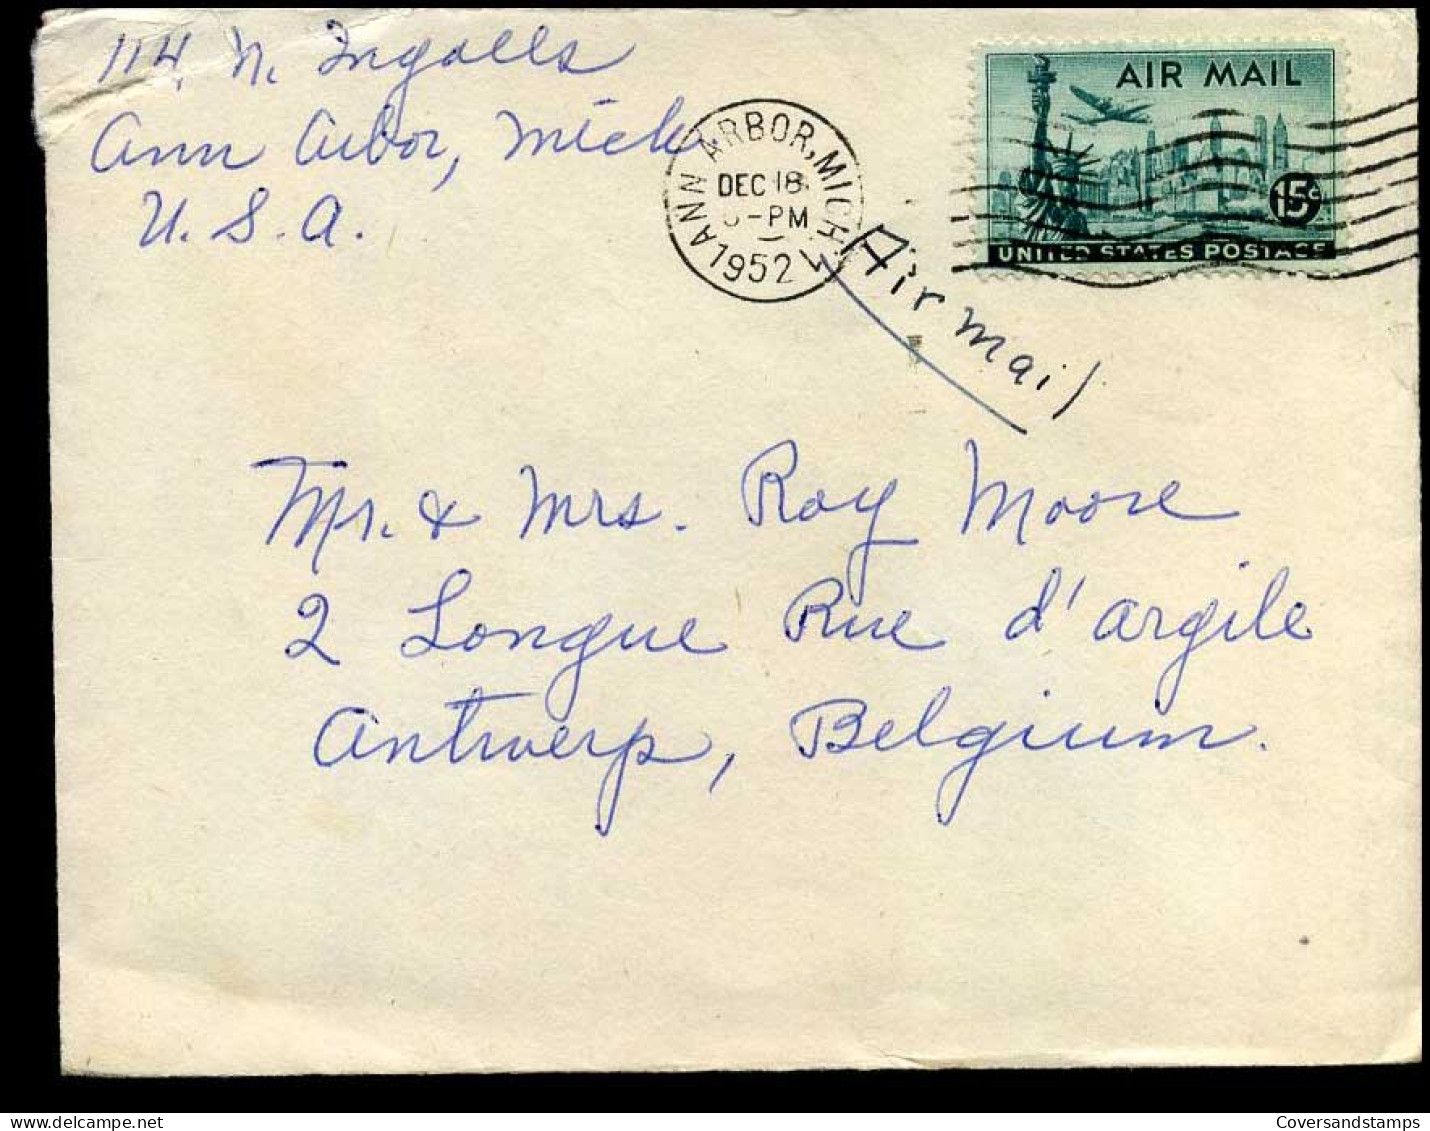 114 N. Ingalls
Ann Arbor, Mich
U.S.A.
ANN ARBOR, MICH
DEC 18
-PM
1952
AIR MAIL
15¢
UNITED STATES POSTAGE
Air mail
Mr. & Mrs. Roy Moore
2 Longue Rue d'argile
Antwerp, Belgium.
Coversandstamps